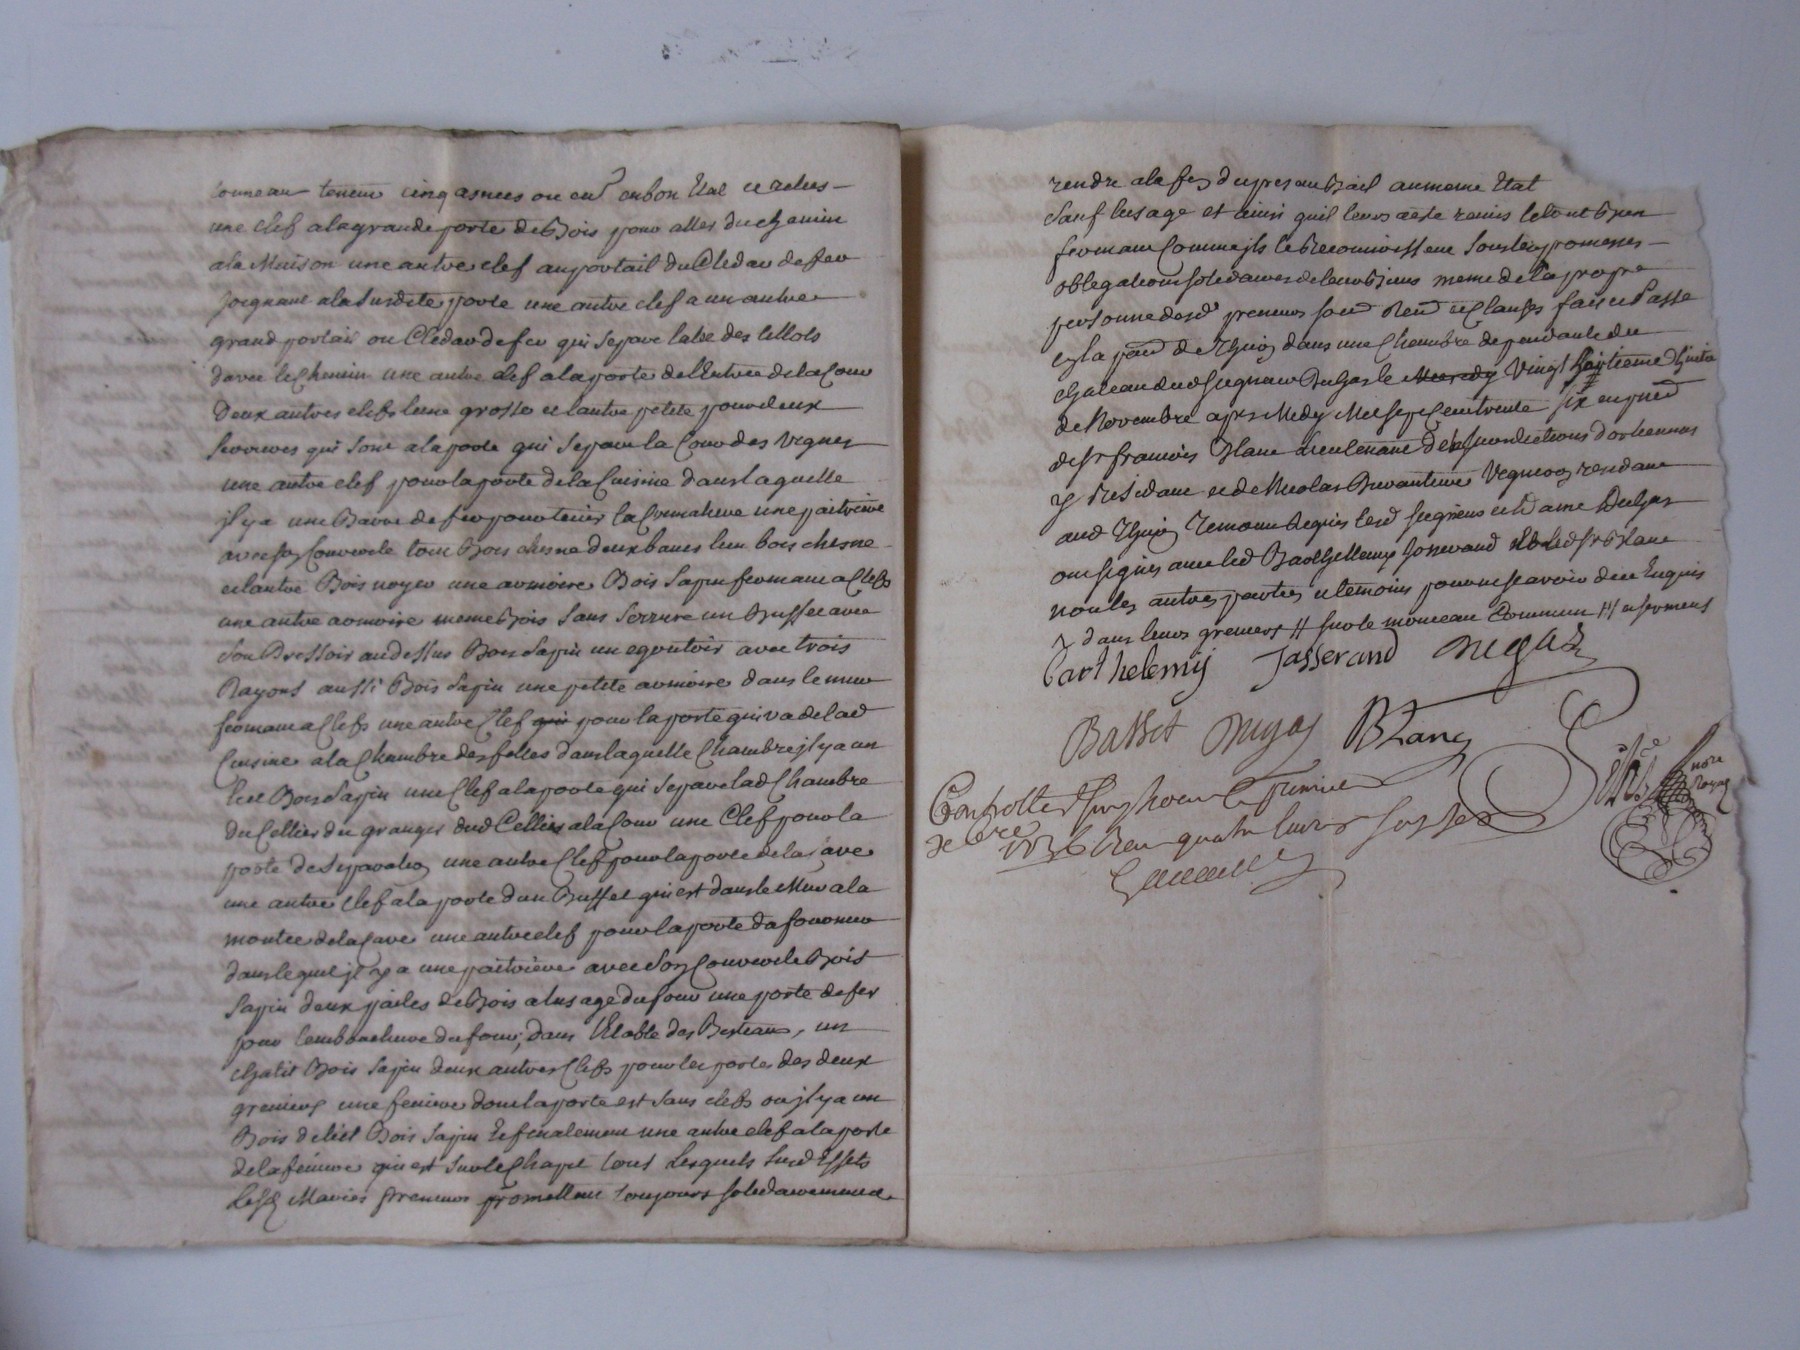 tonneau tenein cinq asnees ou en.on en bon Etat et relies
une clef a la grande porte de Bois pour aller du chemin
a la Maison une autre clef au portail du Cledar de fer
joignant a la susditte porte une autre clef a un autre
grand portail ou Cledar de fer qui separe lalee des tillots
davec le Chemin une autre clef a la porte de l'Entree de la Cour
Deux autres clefs lune grosse et lautre petite pour deux
serrures qui sont a la porte qui separe la Cour des vignes
une autre clef pour la porte de la Cuisine dans laquelle
jl y a une Barre de fer pour tenir la Cremaliere une paitriere
avec son Couvercle tout Bois chesne deux bancs lun bois chesne
et lautre Bois noyer une armoire Bois Sapin fermant a Clefs
une autre armoire meme Bois Sans Serrure un Buffet avec
Son Dressoir au dessus Bois Sapin un egoutoir avec trois
Rayons aussi Bois Sapin une petite armoire dans le mur
fermant a Clefs une autre Clef pour la porte qui va de lad
Cuisine a la Chambre des filles dans laquelle Chambre jl y a un
lict Bois Sapin une Clef a la porte qui separe lad Chambre
du Cellier du granger dud Cellier a la Cour une Clef pour la
porte de Separation une autre Clef pour la porte de la Cave
une autre clef a la porte dun Buffet qui est dans le Mur a la
montee de la Cave une autre clef pour la porte du fournier
dans lequel jl y a une paitriere avec Son Couvercle Bois
Sapin deux pailes de Bois a lusage du four une porte de fer
pour lembouchure du four, dans l'Etable des Bestiaux, un
chalit Bois Sapin deux autres Clefs pour les portes des deux
greniers une feniere dont la porte est Sans clefs ou jl y a un
Bois de lict Bois Sapin Et finalement une autre clef a la porte
de la feniere qui est sur le Chapit tous lesquels Susd Effets
lesd Mariés preneurs promettent toujours solidairement de
rendre a la fin du present Bail au meme Etat
Sauf lusage et ainsi quil leurs a este remis le tout bien
fermant Comme jls le Reconnoissent Sous leurs promesses
obligations solidaires de leurs Biens meme de la propre
personne desd preneurs soum Ren et Clauses fait et Passé
en la par de Thurin dans une Chambre dependante du
chateau dud Seigneur Dugas le Vingt huitieme
de Novembre apres Midy Mil sept Cent trente six en pnce
de Sr francois Blanc Lieutenant des jurisdictions
y residant et de Nicolas Vigneron residant
aud Thurin temoins Requis led Seigneur et Dame Dugas
ont signés avec led Barthellemy Josserand et led Sr Blanc
non les autres parties et temoins pour ne scavoir de ce Enquis
dans leurs greniers // sur le monceau Commun /// et serments
Barthelemy Jasserand Dugas
Basset Dugas Blanc
Controllé a le premier
Xbre 1736 Reçu quatre livres
nore
Royal